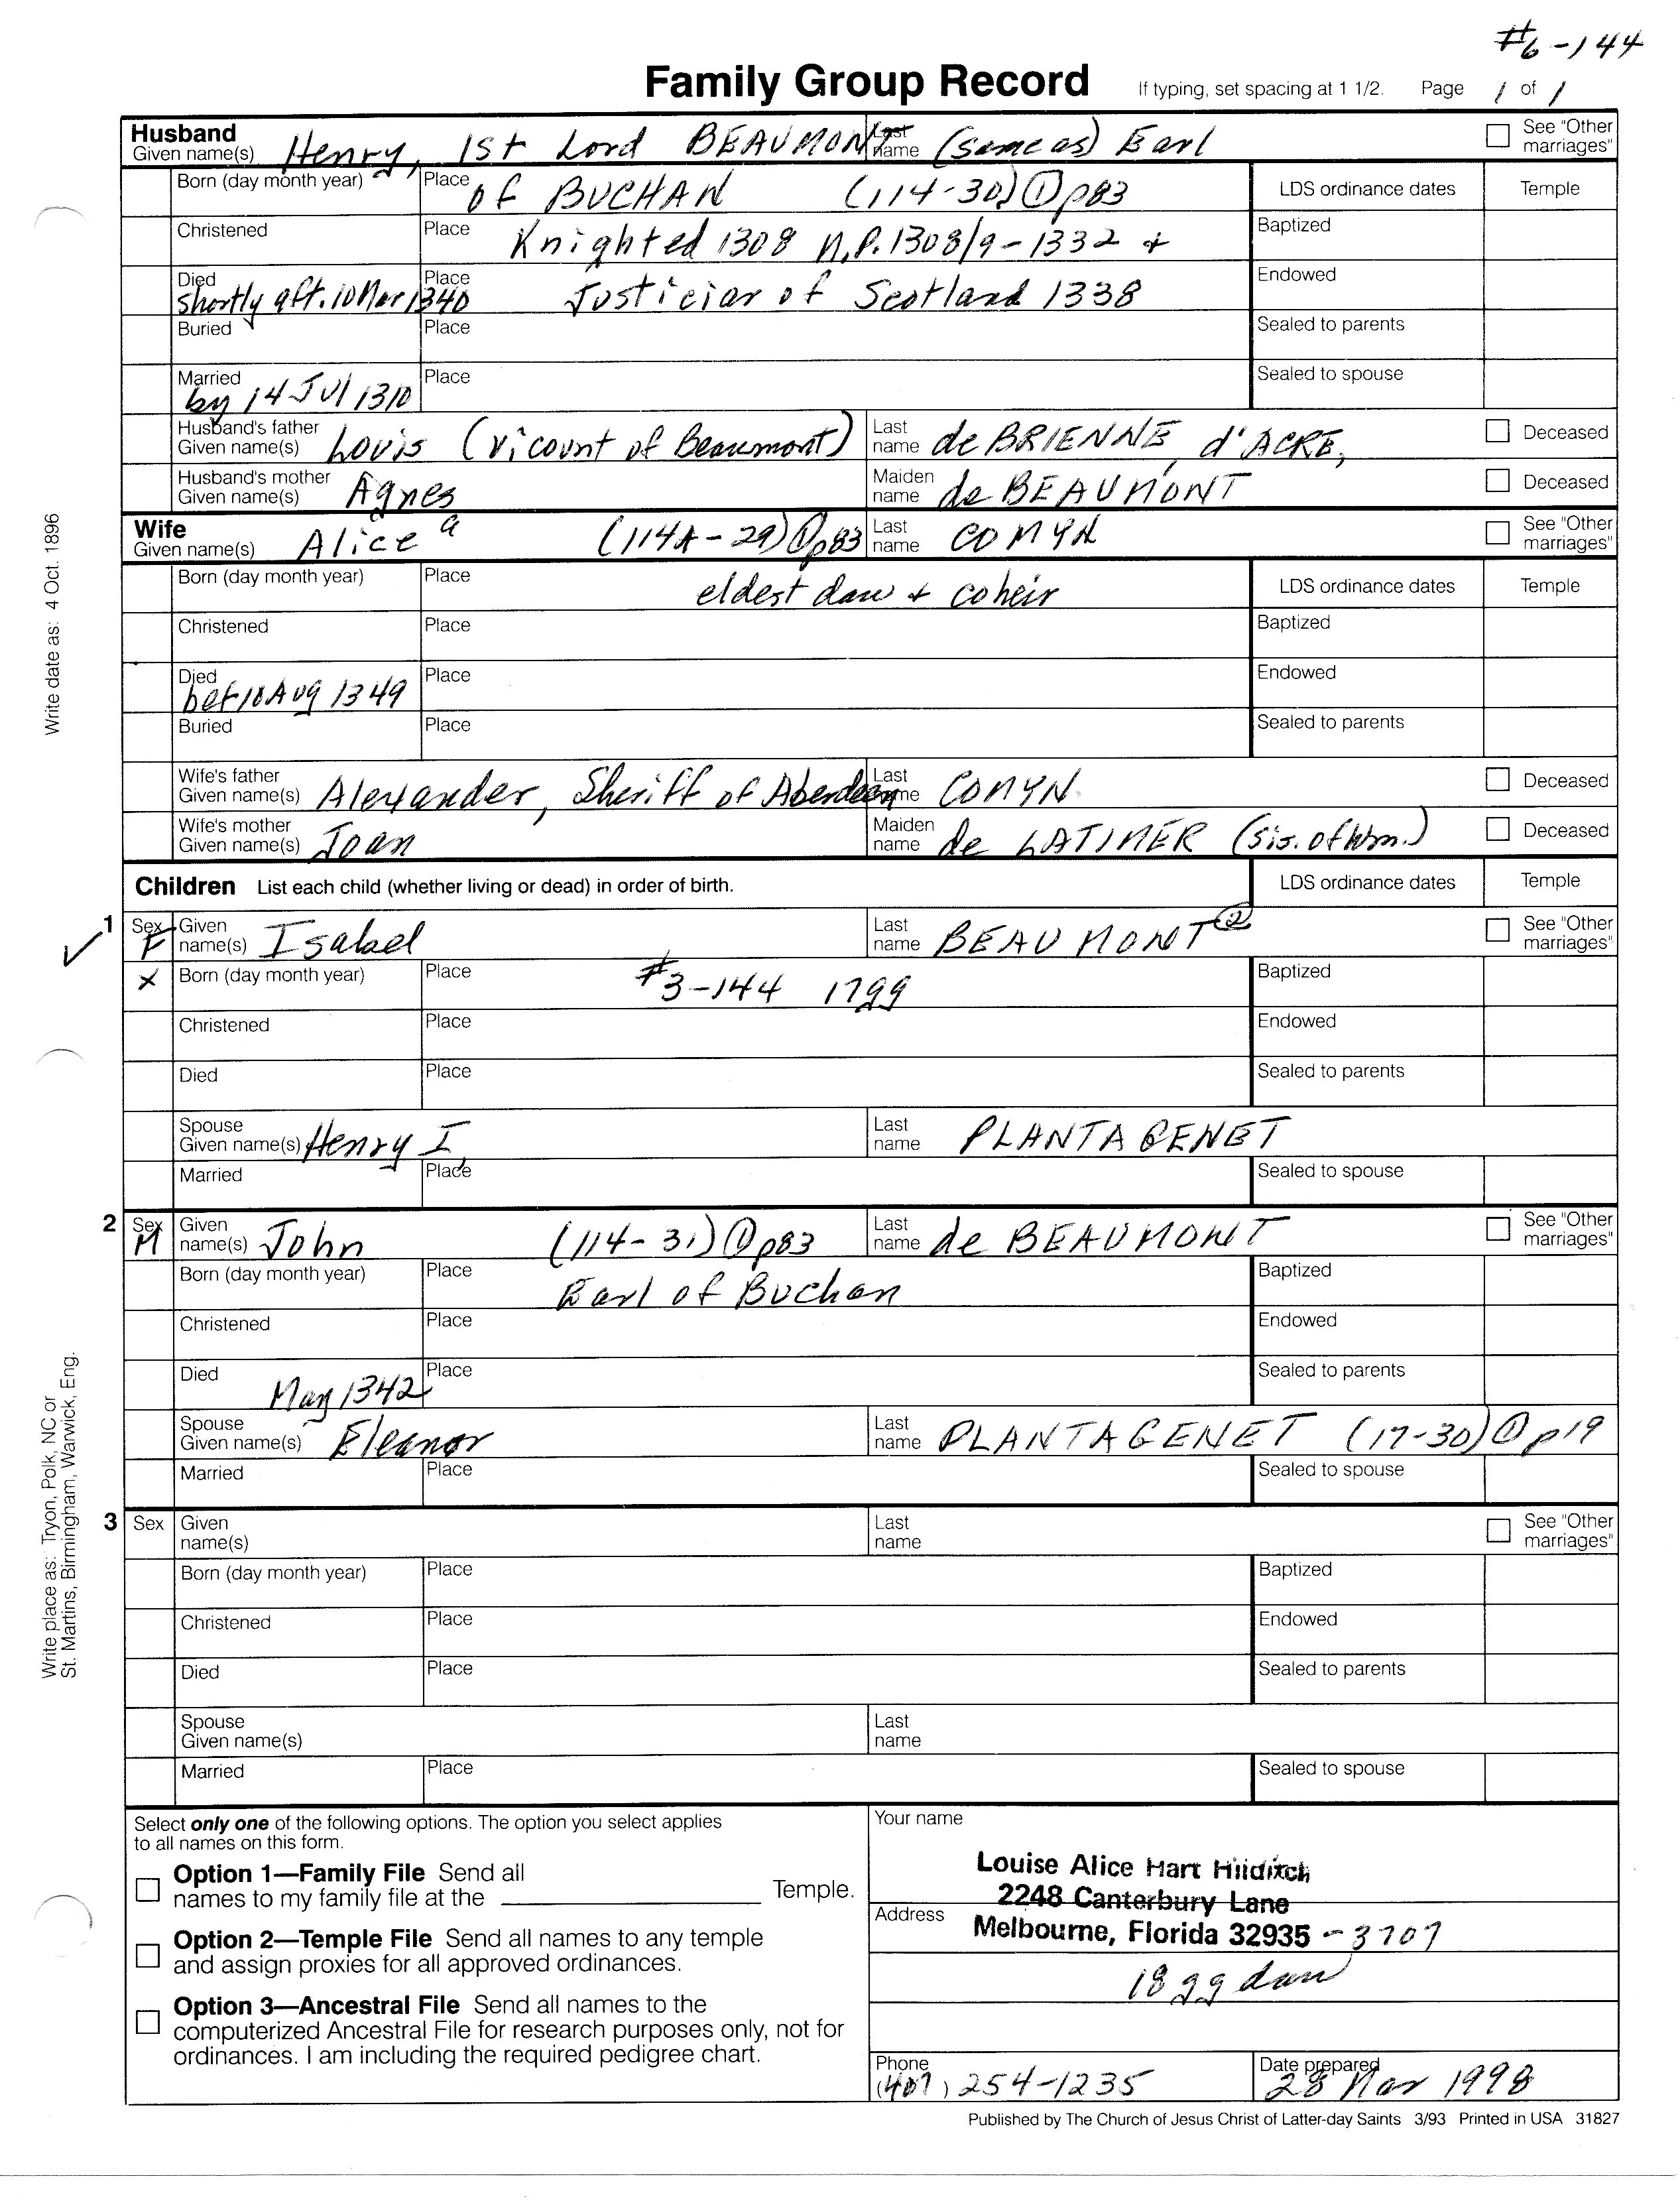 #6-144
Family Group Record If typing, set spacing at 1 1/2. Page 1 of 1
Husband
Given name(s) Henry, 1st Lord BEAUMONT Last name (same as) Earl See "Other marriages"
Born (day month year) Place of BUCHAN (114-30) ① p83 LDS ordinance dates Temple
Christened Place Knighted 1308 M.P. 1308/9-1332 + Baptized
Died shortly aft. 10 Mar 1340 Place Justiciar of Scotland 1338 Endowed
Buried Place Sealed to parents
Married by 14 Jul 1310 Place Sealed to spouse
Husband's father Given name(s) Louis (Vicount of Beaumont) Last name de BRIENNE, d'ACRE, Deceased
Husband's mother Given name(s) Agnes Maiden name de BEAUMONT Deceased
Wife
Given name(s) Alice a (114A-29) ① p83 Last name COMYN See "Other marriages"
Born (day month year) Place eldest dau + coheir LDS ordinance dates Temple
Christened Place Baptized
Died bef 10 Aug 1349 Place Endowed
Buried Place Sealed to parents
Wife's father Given name(s) Alexander, Sheriff of Aberdeen Last name COMYN Deceased
Wife's mother Given name(s) Joan Maiden name de LATIMER (sis. of Wm.) Deceased
Children List each child (whether living or dead) in order of birth. LDS ordinance dates Temple
1 Sex F Given name(s) Isabel Last name BEAUMONT ② See "Other marriages"
X Born (day month year) Place #3-144 17gg Baptized
Christened Place Endowed
Died Place Sealed to parents
Spouse Given name(s) Henry I Last name PLANTAGENET
Married Place Sealed to spouse
2 Sex M Given name(s) John (114-31) ① p83 Last name de BEAUMONT See "Other marriages"
Born (day month year) Place Earl of Buchan Baptized
Christened Place Endowed
Died May 1342 Place Sealed to parents
Spouse Given name(s) Eleanor Last name PLANTAGENET (17-30) ① p19
Married Place Sealed to spouse
3 Sex Given name(s) Last name See "Other marriages"
Born (day month year) Place Baptized
Christened Place Endowed
Died Place Sealed to parents
Spouse Given name(s) Last name
Married Place Sealed to spouse
Select only one of the following options. The option you select applies
to all names on this form.
Option 1—Family File Send all
names to my family file at the Temple.
Option 2—Temple File Send all names to any temple
and assign proxies for all approved ordinances.
Option 3—Ancestral File Send all names to the
computerized Ancestral File for research purposes only, not for
ordinances. I am including the required pedigree chart.
Your name
Louise Alice Hart Hilditch
2248 Canterbury Lane
Address
Melbourne, Florida 32935 - 3707
18 gg dau
Phone (407) 254-1235 Date prepared 28 Mar 1998
Published by The Church of Jesus Christ of Latter-day Saints 3/93 Printed in USA 31827
Write date as: 4 Oct. 1896
Write place as: Tryon, Polk, NC or
St. Martins, Birmingham, Warwick, Eng.